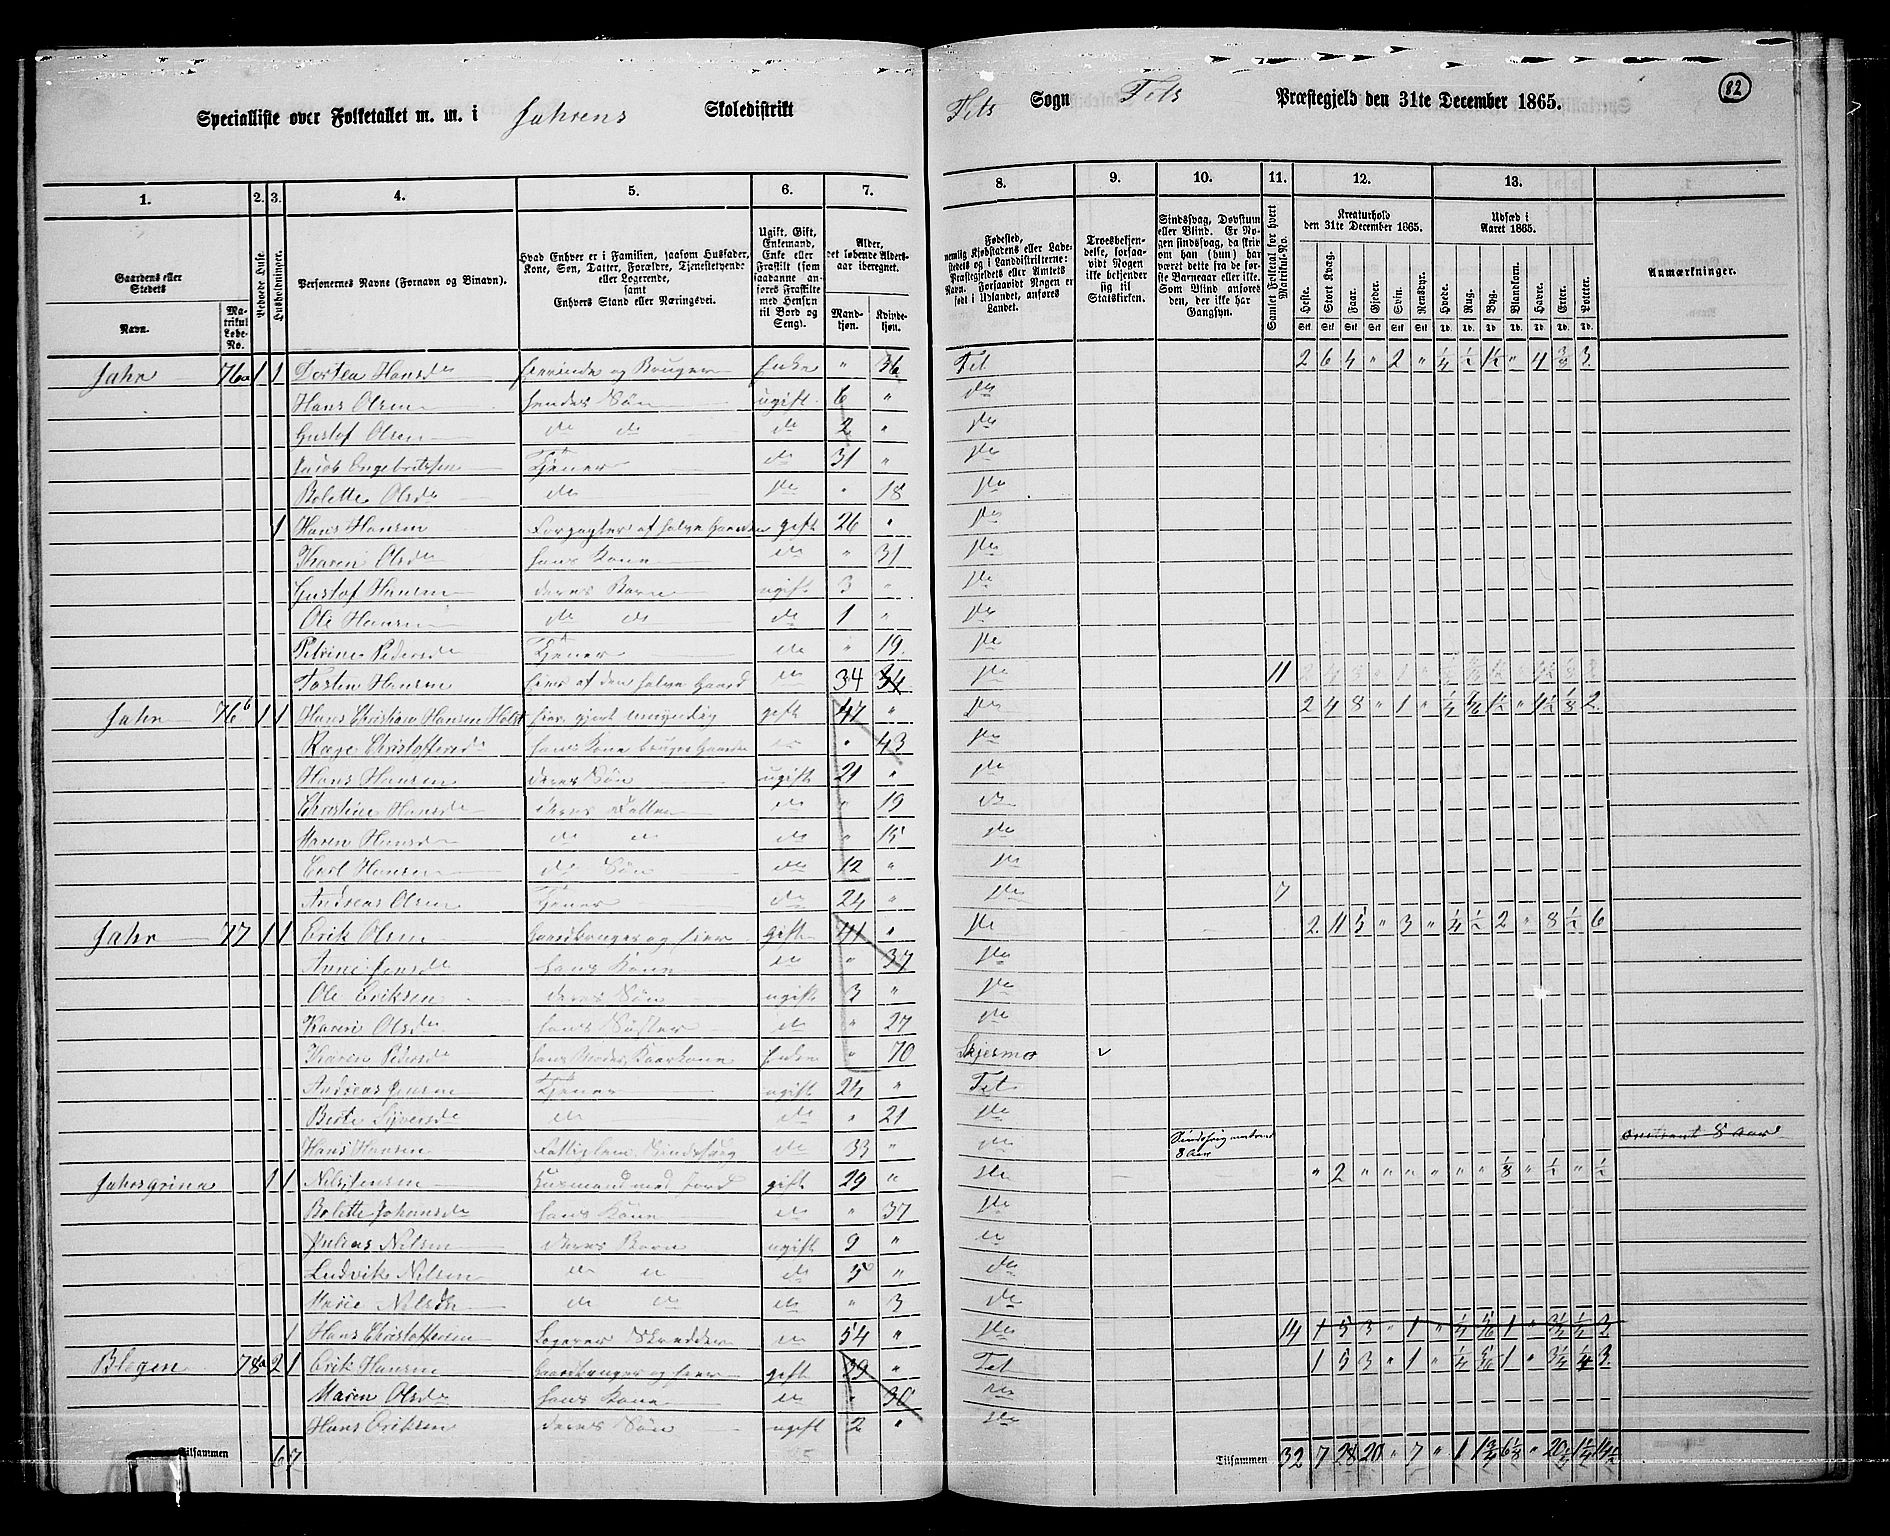 82
Specialliste over Folketallet m. m. i Jahrens Skoledistrikt Fets Sogn Fets Præstegjeld den 31te December 1865.
1. 2. 3. 4. 5. 6. 7. 8. 9. 10. 11. 12. 13.
Gaardens eller Stedets
Navn.
Matrikul Løbe-No.
Bebyede Huse.
Husholdninger.
Personernes Navne (Fornavn og Binavn).
Hvad Enhver er i Familien, saasom Husfader, Kone, Søn, Datter, Forældre, Tjenestetyende eller Logerende, samt Enhvers Stand eller Næringsvei.
Ugift, Gift, Enkemand, Enke eller Fraskilt (som saadanne anføres Fraskilte med Hensyn til Bord og Seng).
Alder, det løbende Aldersaar iberegnet.
Mandkjøn. Kvindekjøn.
Fødested, nemlig Kjøbstadens eller Ladestedets og i Landdistrikterne: Præstegjeldets eller Amtets Navn. Forsaavidt Nogen er født i Udlandet, anføres Landet.
Troesbekjendelse, forsaavidt Nogen ikke bekjender sig til Statskirken.
Sindssvag, Døvstum eller Blind. Er Nogen sindssvag, da skriv om han (hun) har været dette fra de første Barneaar eller ikke. Som Blind anføres den, der ikke har Gangsyn.
Samlet Folketal for hvert Matrikul-No.
Kreaturhold den 31te December 1865.
Heste. Stort Kvæg. Faar. Gjeder. Svin. Rensdyr.
Udsæd i Aaret 1865.
Hvede. Rug. Byg. Blandkorn. Havre. Erter. Poteter.
Anmærkninger.
Jahr 76a 1 1 Dortea Hansdr Gaardbruger Enke " 36 Fet 2 6 4 " 2 " 1/4 1/2 1½ " 4 3/8 3
Hans Olsen hendes Søn ugift 6 " do
Gustof Olsen do do do 2 " do
Jacob Engebritsen Tjener do 31 " do
Bolette Olsdr do do " 18 do
1 Hans Hansen Forpagter af halve Gaarden gift 26 " do
Karen Olsdr hans Kone do " 31 do
Gustof Hansen deres Barn ugift 3 " do
Ole Hansen do do do 1 " do
Petrine Pedersdr Tjener do " 19 do
Hansen Eier af den halve Gaard do 34 34 do 11
Jahr 76b 1 1 Hans Christian Hansen Holst Eier, gjort umyndig gift 47 " do 2 4 8 " 1 " 1/4 1½ " 1½ 1/8 2
Christoffersdr hans Kone bruger Gaarden do " 43 do
Hans Hansen deres Søn ugift 21 " do
Christine Hansdr deres Datter do " 19 do
Maren Hansdr do do do " 15 do
Carl Hansen do Søn do 12 " do
Andreas Olsen Tjener do 24 " do 7
Jahr 77 1 1 Erik Olsen Gaardbruger og Eier gift 41 " do 2 11 5 " 3 " 1/4 1/2 2 " 8 1/2 6
Anne Jensdr hans Kone do " 37 do
Ole Eriksen deres Søn ugift 3 " do
Karen Olsdr hans Søster do " 27 do
Karen Pedersdr hans Moder, Kaarkone Enke " 70 Skjesmo
Andreas Jensen Tjener ugift 24 " Fet
Berte Syversdr do do " 21 do
Hans Hansen Fattiglem Sindssvag do 33 " do 8 Aar 8 Aar
Jahrsgrina 1 1 Nels Jensen Husmand med Jord gift 29 " do " 2 " " " " " " 1/8 " 1/2 " 1/2
Bolette Johansdr hans Kone do " 37 do
Julius Nilsen deres Barn ugift 9 " do
Ludvik Nelsen do do do 5 " do
Marie Nelsdr do do do " 3 do
1 Hans Christoffersen Logerer Skrædder do 54 " do 14 1 5 3 " 1 " 1/4 5/16 1 " 3¼ 1/2 3
Blegen 78a 2 1 Erik Hansen Gaardbruger og Eier gift 39 " Fet 1 5 3 " 1 " 1/4 5/16 1 " 3¼ 1/4 3
Maren Olsdr hans Kone do " 30 do
Hans Eriksen deres Søn ugift 2 " do
Tilsammen 6 7 Tilsammen 32 7 28 20 " 7 " 1 6⅛ "